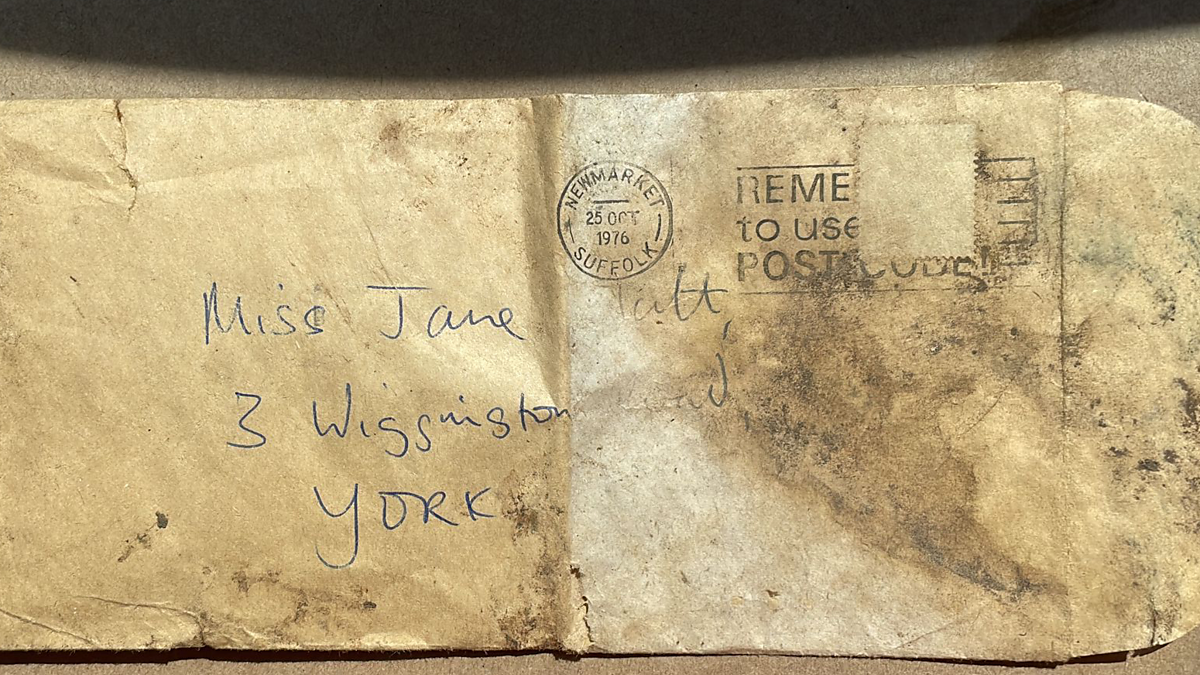 NEWMARKET
25 OCT
1976
SUFFOLK
REME
to use
POST CODE!
Miss Jane
3 Wiggington Road
YORK